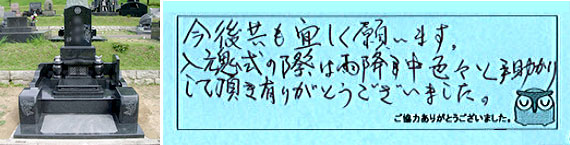 今後共も宜しく願います。
入魂式の際は雨降り中色々と手助かり
して頂き有りがとうございました。
ご協力ありがとうございました。